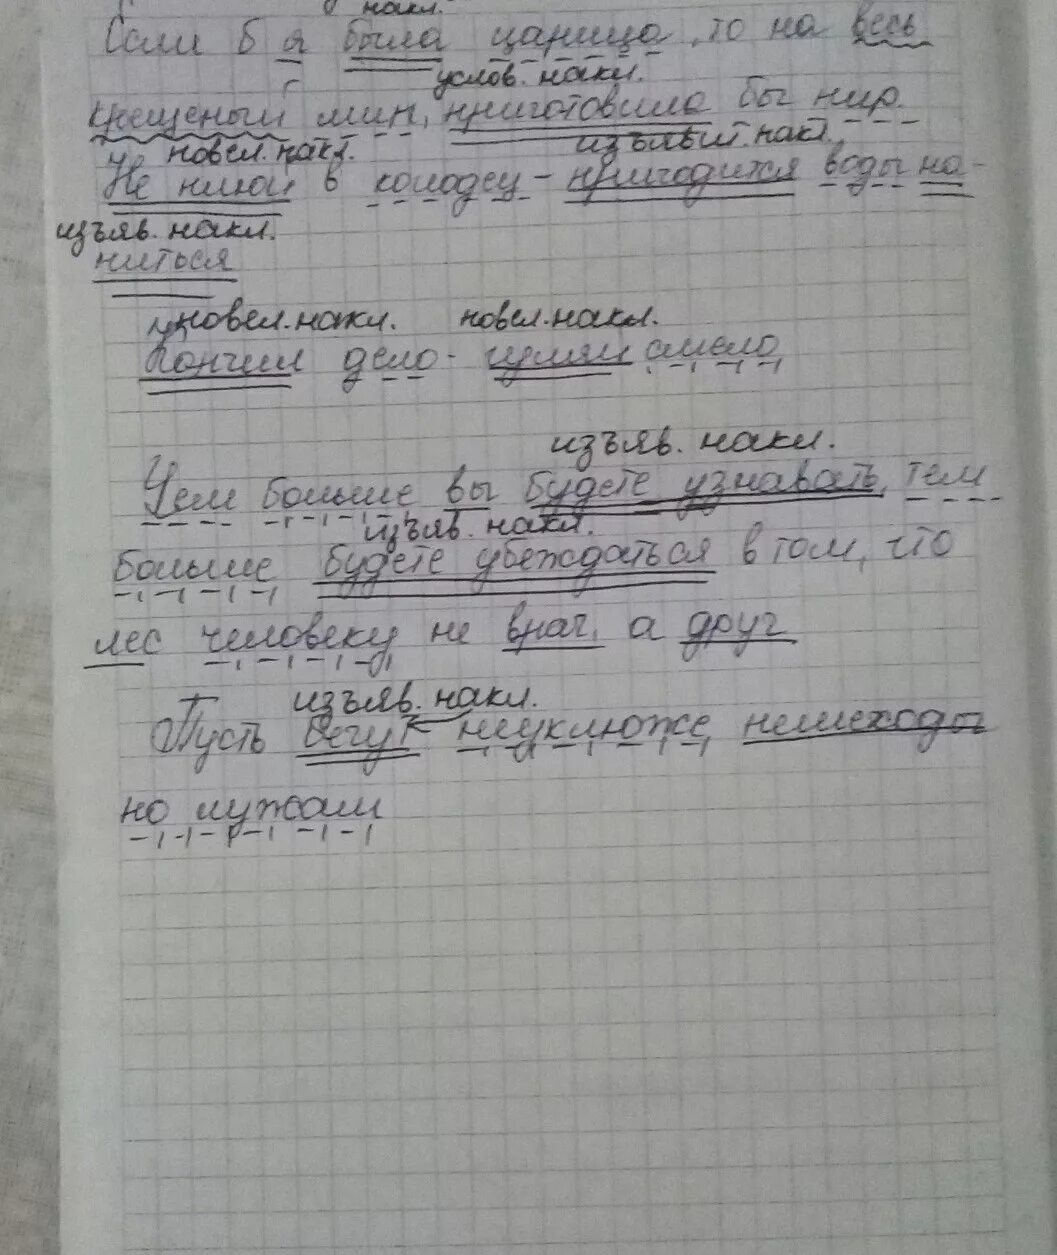 накл.
Если б я была царица, то на весь
услов. накл.
крещеный мир, приготовила бы пир.
повел. накл. изъявит. накл.
Не плюй в колодец - пригодится воды на-
изъяв. накл.
питься
повел. накл. повел. накл.
Кончил дело - гуляй смело
изъяв. накл.
Чем больше вы будете узнавать, тем
изъяв. накл.
больше будете убеждаться в том, что
лес человеку не враг, а друг
изъяв. накл.
Пусть бегут неуклюже пешеходы
по лужам